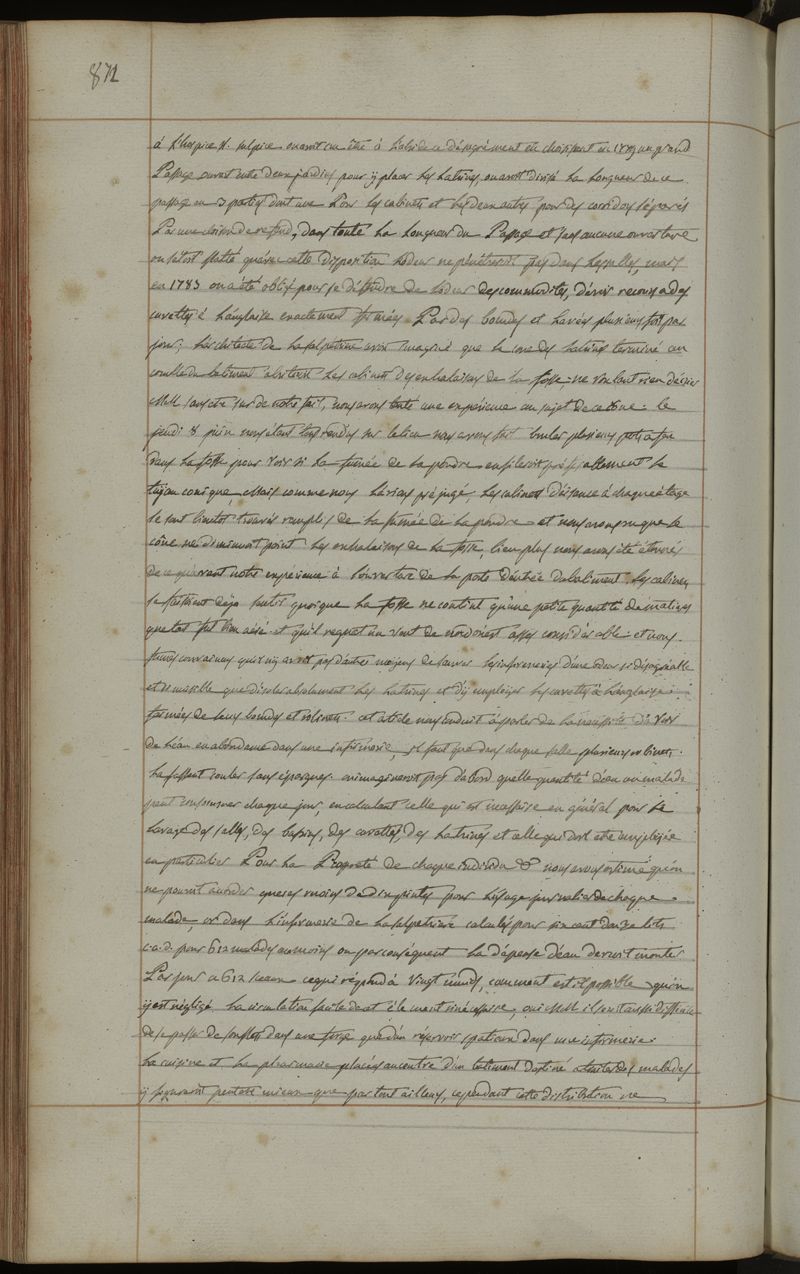 872
à l'hospice St. sulpice on avoit cru être à l'abri de ce désagrément en choisissant en 1779 un grand
Passage ouvert entre deux jardins pour y placer les latrines, on avoit divisé la longueur de ce
passage en 3 parties dont une pour les cabinets et les deux autres pour des corridors séparés
Par une cloison de refend, dans toute la longueur du Passage et sans aucune ouverture
on s'étoit flatté qu'avec cette disposition l'odeur ne pénétreroit pas dans les salles, mais
en 1783 on a été obligé pour se défendre de l'odeur des commodités, d'avoir recours a des
cuvettes à l'anglaise exactement fermées Par des bondes et lavées plusieurs fois par
jour; l'architecte de la salpetriere avoit imaginé que le cone des latrines terminé au
comble du batiment attireroit les exhalaisons de la fosse: ne voulant rien décider
MM sans être sur de notre fait, nous avons tenté une expérience au sujet de ce cône. le
jeudi 8 juin nous étant tous rendus sur le lieu nous avons fait bruler plusieurs
dans la fosse pour voir si la fumée de la poudre enfileroit préférablement le
tuyau conique, Mais comme nous l'avions préjugé, les cabinets d'aisance à chaque étage
se sont bientot trouvés remplis de la fumée de la poudre et nous avons vu que le
cône ne diminuoit point les exhalaisons de la fosse, bien plus nous avons été étonnés
de ce qu'avant notre expérience à l'ouverture de la porte d'entrée du batiment les cabinets
se faisoient deja sentir quoique la fosse ne contint qu'une petite quantité de matieres
que tout fut bien aéré et qu'il regnat un vent de nord ouest assez considérable: et nous
fumes convaincus qu'il n'y avoit pas d'autres moyens de sauver les infirmeries d'une odeur si désagréable
et si nuisible que d'isoler absolument les latrines et d'y employer les cuvettes à l'anglaise
fermées de leurs bondes et robinets. cet article nous conduit à parler de la nécessité d'avoir
de l'eau en abondance dans une infirmerie, il faut que dans chaque salle plusieurs robinets
la fassent couler sans épargne. on n'imagineroit pas d'abord quelle quantité d'eau un malade
peut consommer chaque jour, en calculant celle qui est necessaire en général pour le
lavage des salles, des bassins, des cuvettes, des latrines et celle qui doit etre employée
en particulier Pour la Propreté de chaque individu &c nous avons estimé qu'on
ne pouvoit accorder gueres moins de dix pintes pour l'usage journalier de chaque
malade, or dans l'infirmerie de la salpetriere calculée pour six cent douze lits
c.a.d. pour 612 malades au moins on par conséquent la dépense d'eau devroit monter
Par jour a 612 sceaux ce qui répond à vingt muids, comment est il possible qu'on
y ait négligé la circulation facile de cet élément si nécessaire, oui MM il seroit aussi difficile
de se passer de soufflets dans une forge que d'un réservoir spatieux dans une infirmerie.
La cuisine et la pharmacie placées au centre d'un batiment destiné a traiter des malades
y figureront peut etre mieux que par tout ailleurs, cependant cette distribution ne